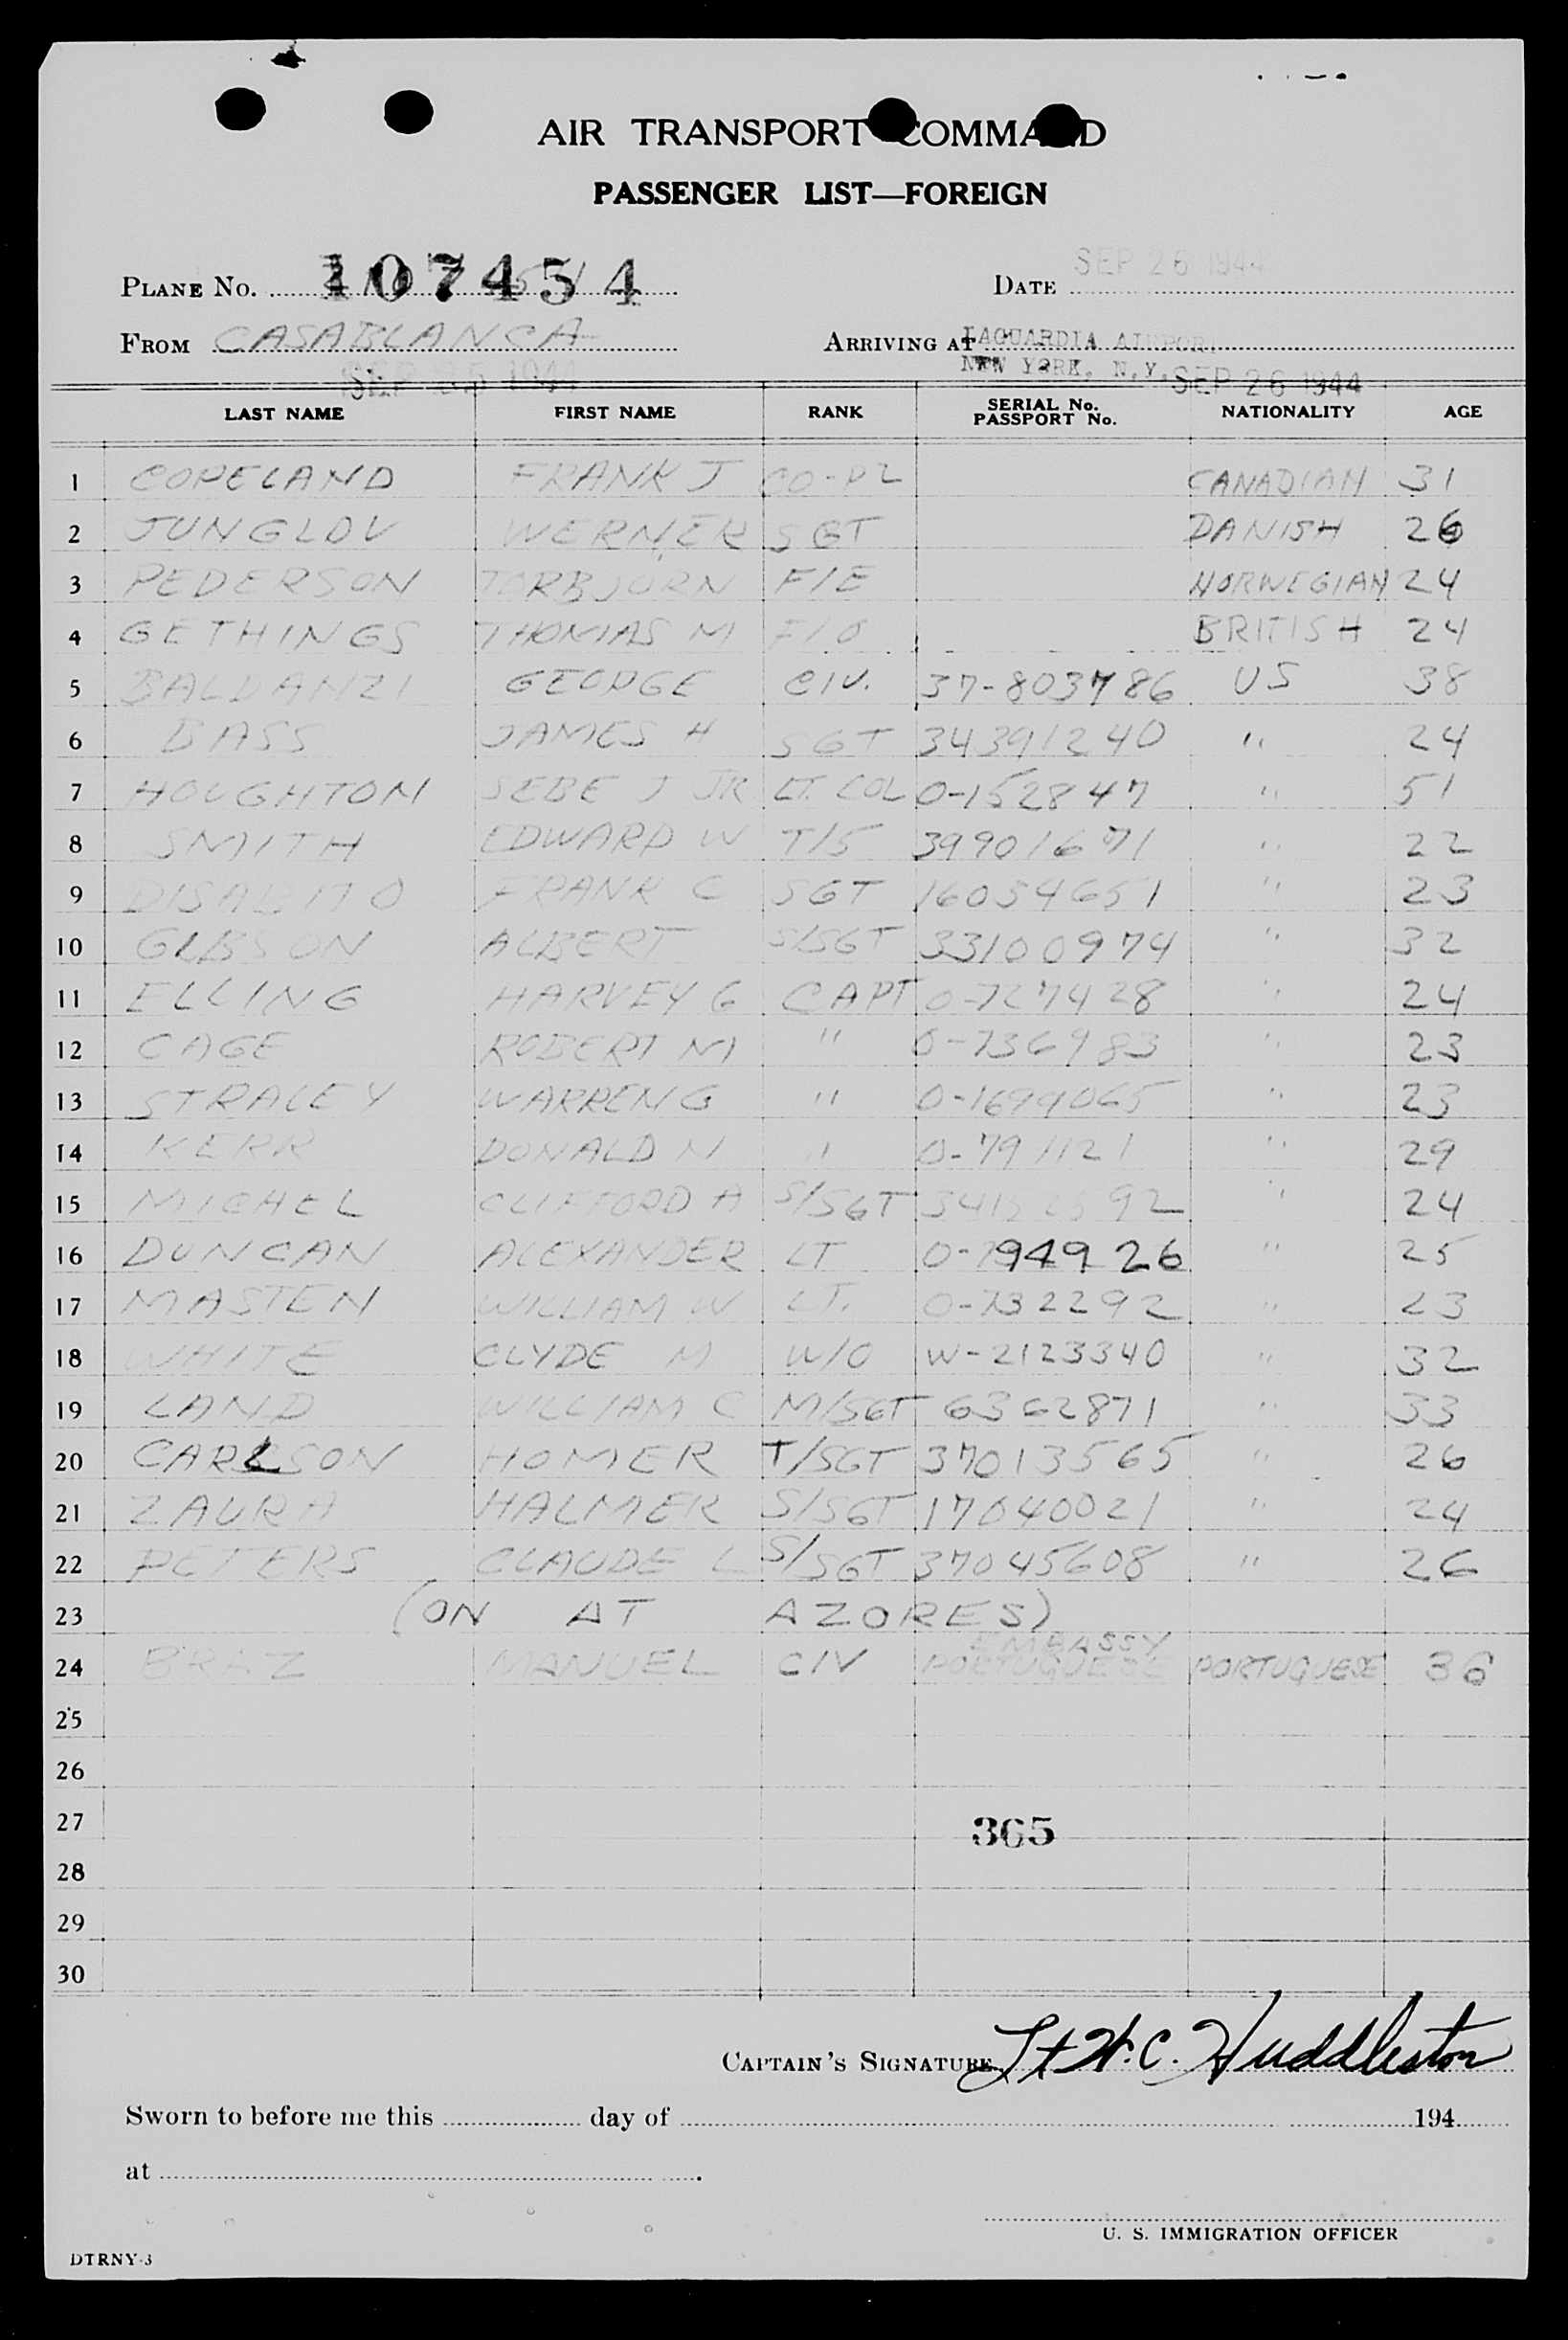 AIR TRANSPORT COMMAND
PASSENGER LIST—FOREIGN
PLANE No. 107454
DATE SEP 26 1944
FROM CASABLANCA
ARRIVING AT LAGUARDIA AIRPORT
NEW YORK, N.Y. SEP 26 1944
SEP 25 1944
LAST NAME FIRST NAME RANK SERIAL No. PASSPORT No. NATIONALITY AGE
1 COPELAND FRANK J CO-PL CANADIAN 31
2 JUNGLOV WERNER SGT DANISH 26
3 PEDERSON TORBJORN F/E NORWEGIAN 24
4 GETHINGS THOMAS M F/O BRITISH 24
5 BALDANZI GEORGE CIV. 37-803786 US 38
6 BASS JAMES H SGT 34391240 " 24
7 HOUGHTON SEBE J JR LT. COL 0-152847 " 51
8 SMITH EDWARD W T/5 39901671 " 22
9 DISABITO FRANK C SGT 16054651 " 23
10 GIBSON ALBERT S/SGT 33100974 " 32
11 ELLING HARVEY G CAPT 0-727428 " 24
12 CAGE ROBERT M " 0-736983 " 23
13 STRALEY WARREN G " 0-1699065 " 23
14 KERR DONALD N " 0-791121 " 29
15 MICHEL CLIFFORD A S/SGT " 24
16 DUNCAN ALEXANDER LT 0-794926 " 25
17 MASTEN WILLIAM W LT. 0-732292 " 23
18 WHITE CLYDE M W/O W-2123340 " 32
19 LAND WILLIAM C M/SGT 6362871 " 33
20 CARLSON HOMER T/SGT 37013565 " 26
21 ZAURA HALMER S/SGT 17040021 " 24
22 PETERS CLAUDE L S/SGT 37045608 " 26
23 (ON AT AZORES)
24 BRAZ MANUEL CIV PORTUGUESE EMBASSY PORTUGUESE 36
25
26
27 365
28
29
30
CAPTAIN'S SIGNATURE Lt W.C. Huddleston
Sworn to before me this day of 194
at
U. S. IMMIGRATION OFFICER
DTRNY-3